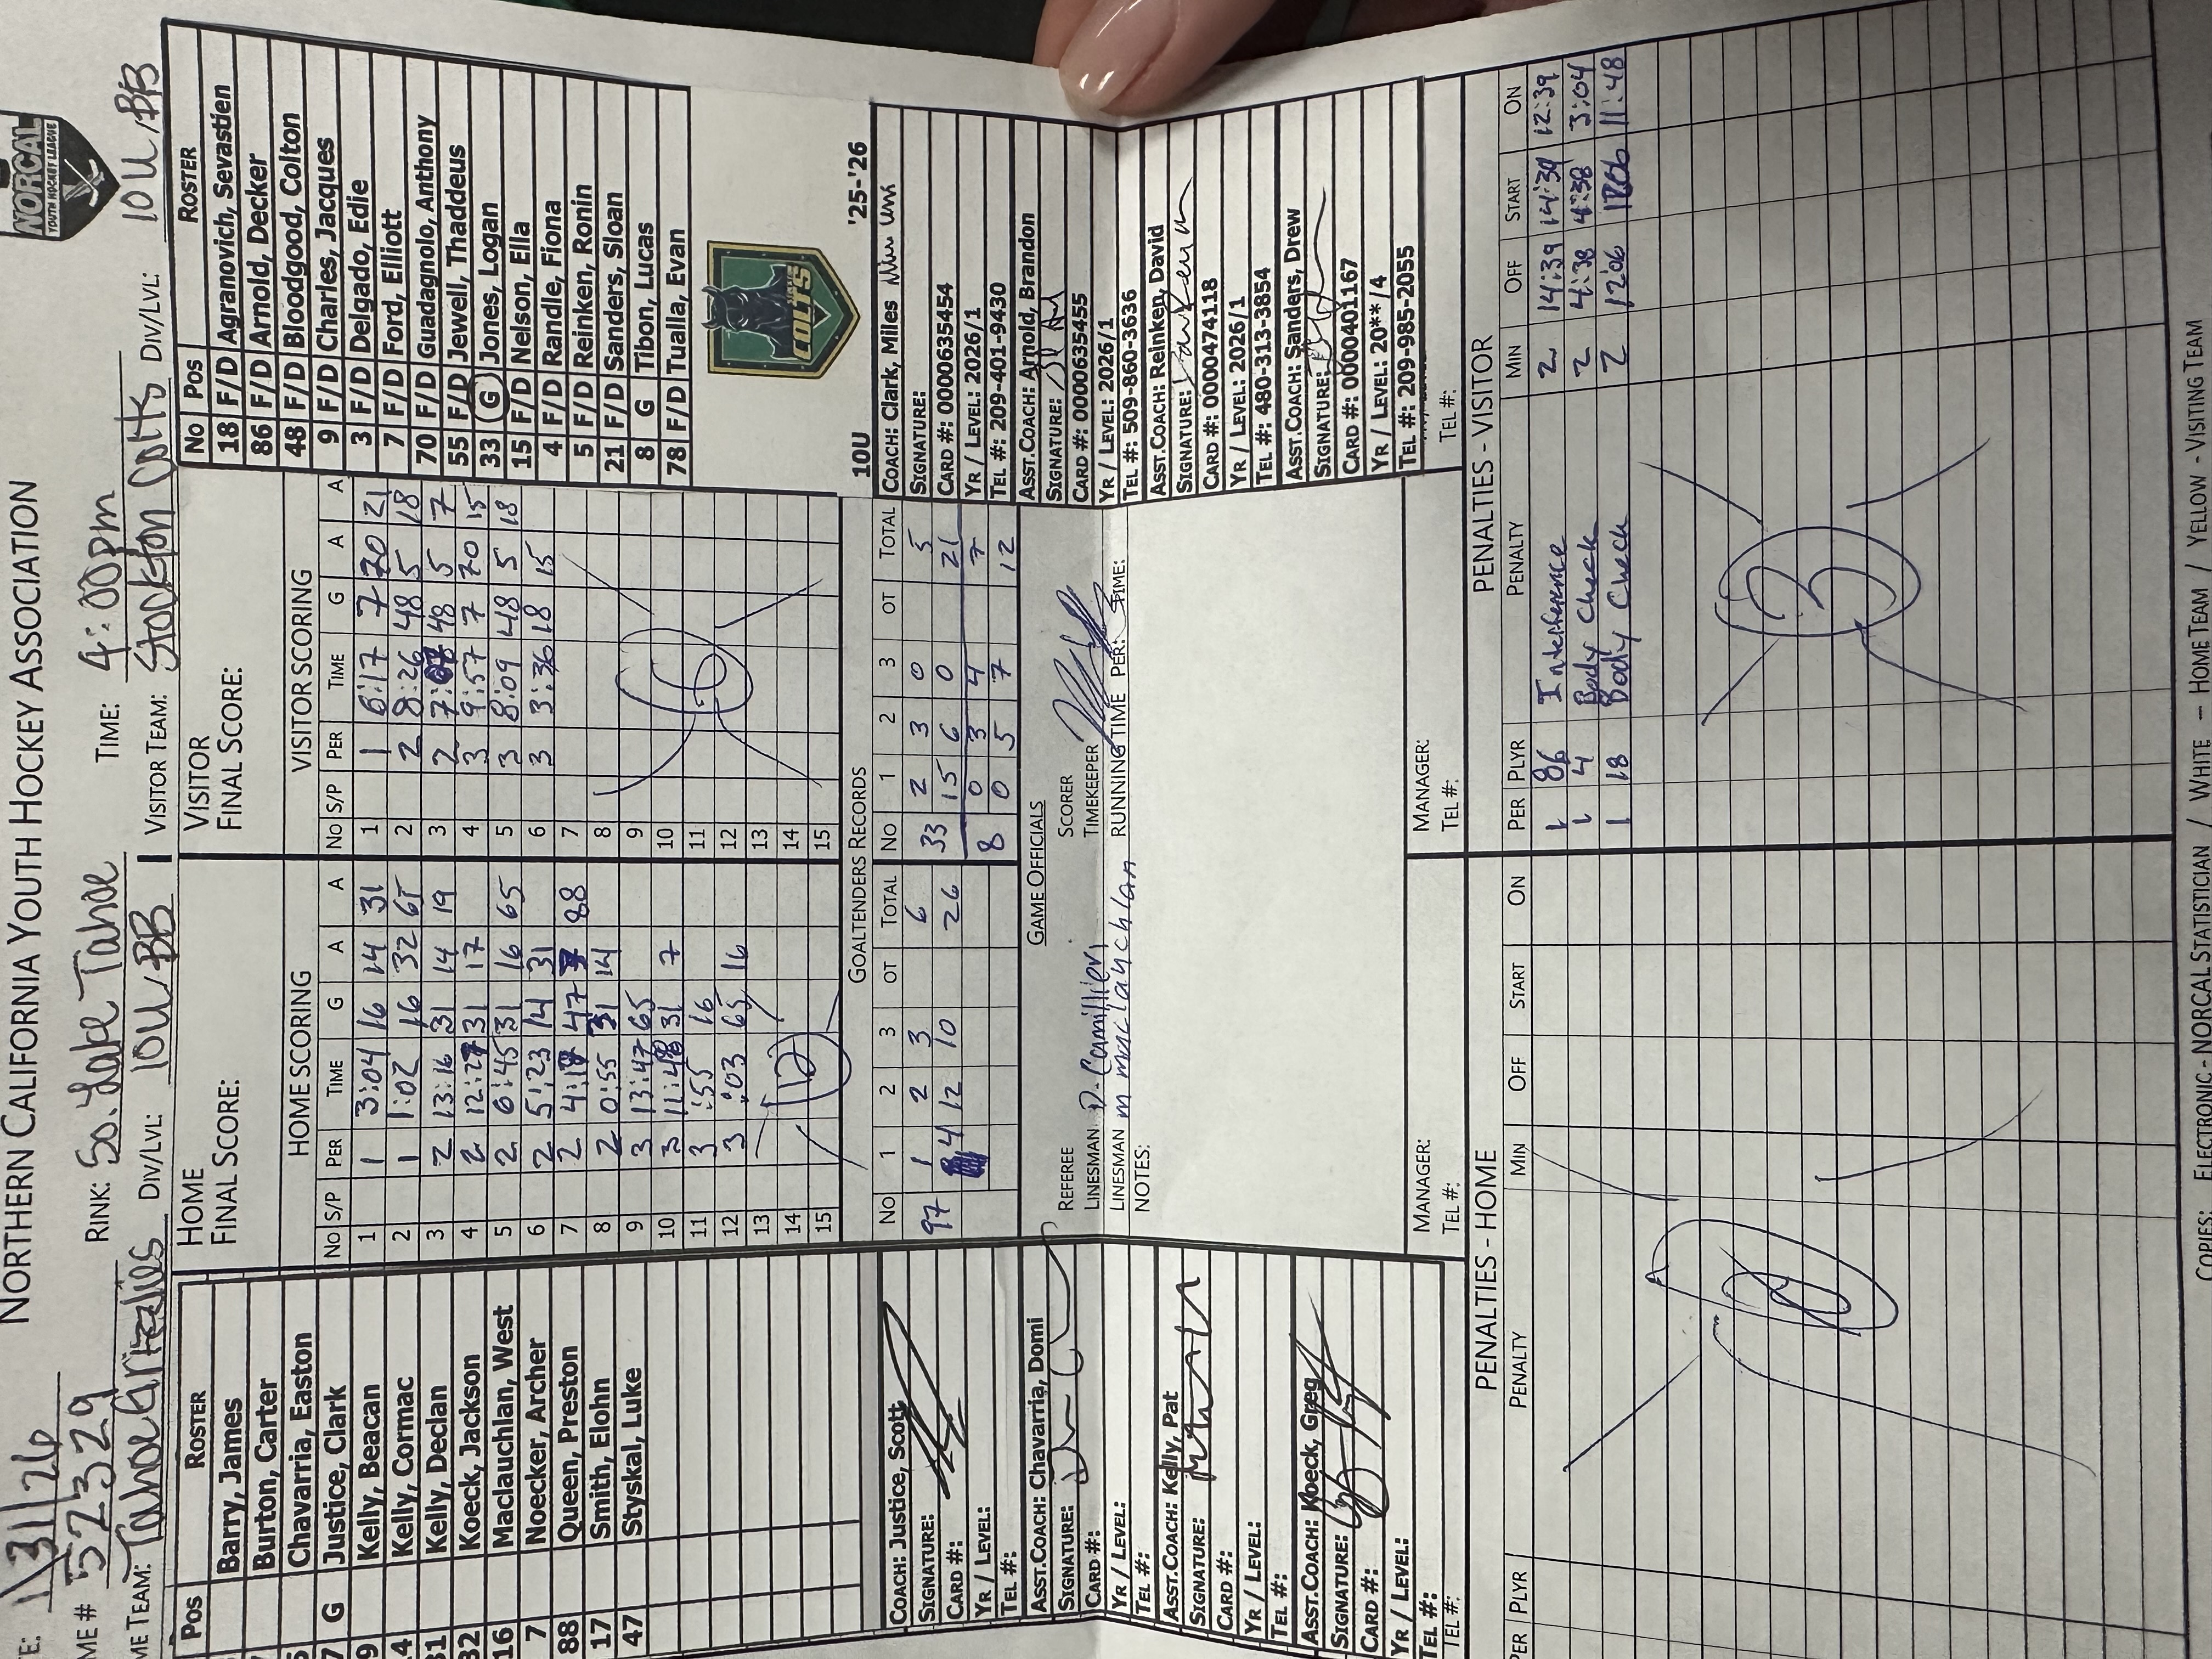 NORTHERN CALIFORNIA YOUTH HOCKEY ASSOCIATION
NORCAL
YOUTH HOCKEY LEAGUE
TE: 1/31/26
ME # 52329 RINK: So. Lake Tahoe TIME: 4:00pm
ME TEAM: Tahoe Grizzlies DIV/LVL: 10U/BB VISITOR TEAM: Stockton Colts DIV/LVL: 10U/BB
Pos ROSTER
Barry, James
Burton, Carter
Chavarria, Easton
7 G Justice, Clark
9 Kelly, Beacan
4 Kelly, Cormac
31 Kelly, Declan
32 Koeck, Jackson
16 Maclauchlan, West
7 Noecker, Archer
88 Queen, Preston
17 Smith, Elohn
47 Styskal, Luke
HOME
FINAL SCORE:
HOME SCORING
No S/P PER TIME G A A
1 1 3:04 16 14 31
2 1 1:02 16 32 65
3 2 13:16 31 14 19
4 2 12:27 31 17
5 2 6:45 31 16 65
6 2 5:23 14 31
7 2 4:18 47 7 88
8 2 0:55 31 14
9 3 13:47 65
10 3 11:48 31 7
11 3 :55 16
12 3 :03 65 16
13
14
15
12
VISITOR
FINAL SCORE:
VISITOR SCORING
No S/P PER TIME G A A
1 1 6:17 7 70 21
2 2 8:26 48 5 18
3 2 7: 48 5 7
4 3 9:57 7 70 15
5 3 8:09 48 5 18
6 3 3:36 18 15
7
8
9
10
11
12
13
14
15
6
No Pos ROSTER
18 F/D Agranovich, Sevastien
86 F/D Arnold, Decker
48 F/D Bloodgood, Colton
9 F/D Charles, Jacques
3 F/D Delgado, Edie
7 F/D Ford, Elliott
70 F/D Guadagnolo, Anthony
55 F/D Jewell, Thaddeus
33 G Jones, Logan
15 F/D Nelson, Ella
4 F/D Randle, Fiona
5 F/D Reinken, Ronin
21 F/D Sanders, Sloan
8 G Tibon, Lucas
78 F/D Tualla, Evan
COLTS
10U '25-'26
GOALTENDERS RECORDS
No 1 2 3 OT TOTAL No 1 2 3 OT TOTAL
97 1 2 3 6 33 2 3 0 5
4 12 10 26 15 6 0 21
8 0 3 4 7
0 5 7 12
GAME OFFICIALS
REFEREE SCORER
LINESMAN D. Camillieri TIMEKEEPER
LINESMAN m maclauchlan RUNNING TIME PER: TIME:
NOTES:
COACH: Justice, Scott
SIGNATURE:
CARD #:
YR / LEVEL:
TEL #:
ASST.COACH: Chavarria, Domi
SIGNATURE:
CARD #:
YR / LEVEL:
TEL #:
ASST.COACH: Kelly, Pat
SIGNATURE:
CARD #:
YR / LEVEL:
TEL #:
ASST.COACH: Koeck, Greg
SIGNATURE:
CARD #:
YR / LEVEL:
TEL #:
TEL #:
COACH: Clark, Miles
SIGNATURE:
CARD #: 0000635454
YR / LEVEL: 2026/1
TEL #: 209-401-9430
ASST.COACH: Arnold, Brandon
SIGNATURE:
CARD #: 0000635455
YR / LEVEL: 2026/1
TEL #: 509-860-3636
ASST.COACH: Reinken, David
SIGNATURE:
CARD #: 0000474118
YR / LEVEL: 2026/1
TEL #: 480-313-3854
ASST.COACH: Sanders, Drew
SIGNATURE:
CARD #: 0000401167
YR / LEVEL: 20**/4
TEL #: 209-985-2055
MANAGER: MANAGER:
TEL #: TEL #: TEL #:
PENALTIES - HOME
PER PLYR PENALTY MIN OFF START ON
0
PENALTIES - VISITOR
PER PLYR PENALTY MIN OFF START ON
1 86 Interference 2 14:39 14:39 12:39
1 4 Body Check 2 4:38 4:38 3:04
1 18 Body Check 2 12:06 11:48
3
COPIES: ELECTRONIC - NORCAL STATISTICIAN / WHITE - HOME TEAM / YELLOW - VISITING TEAM